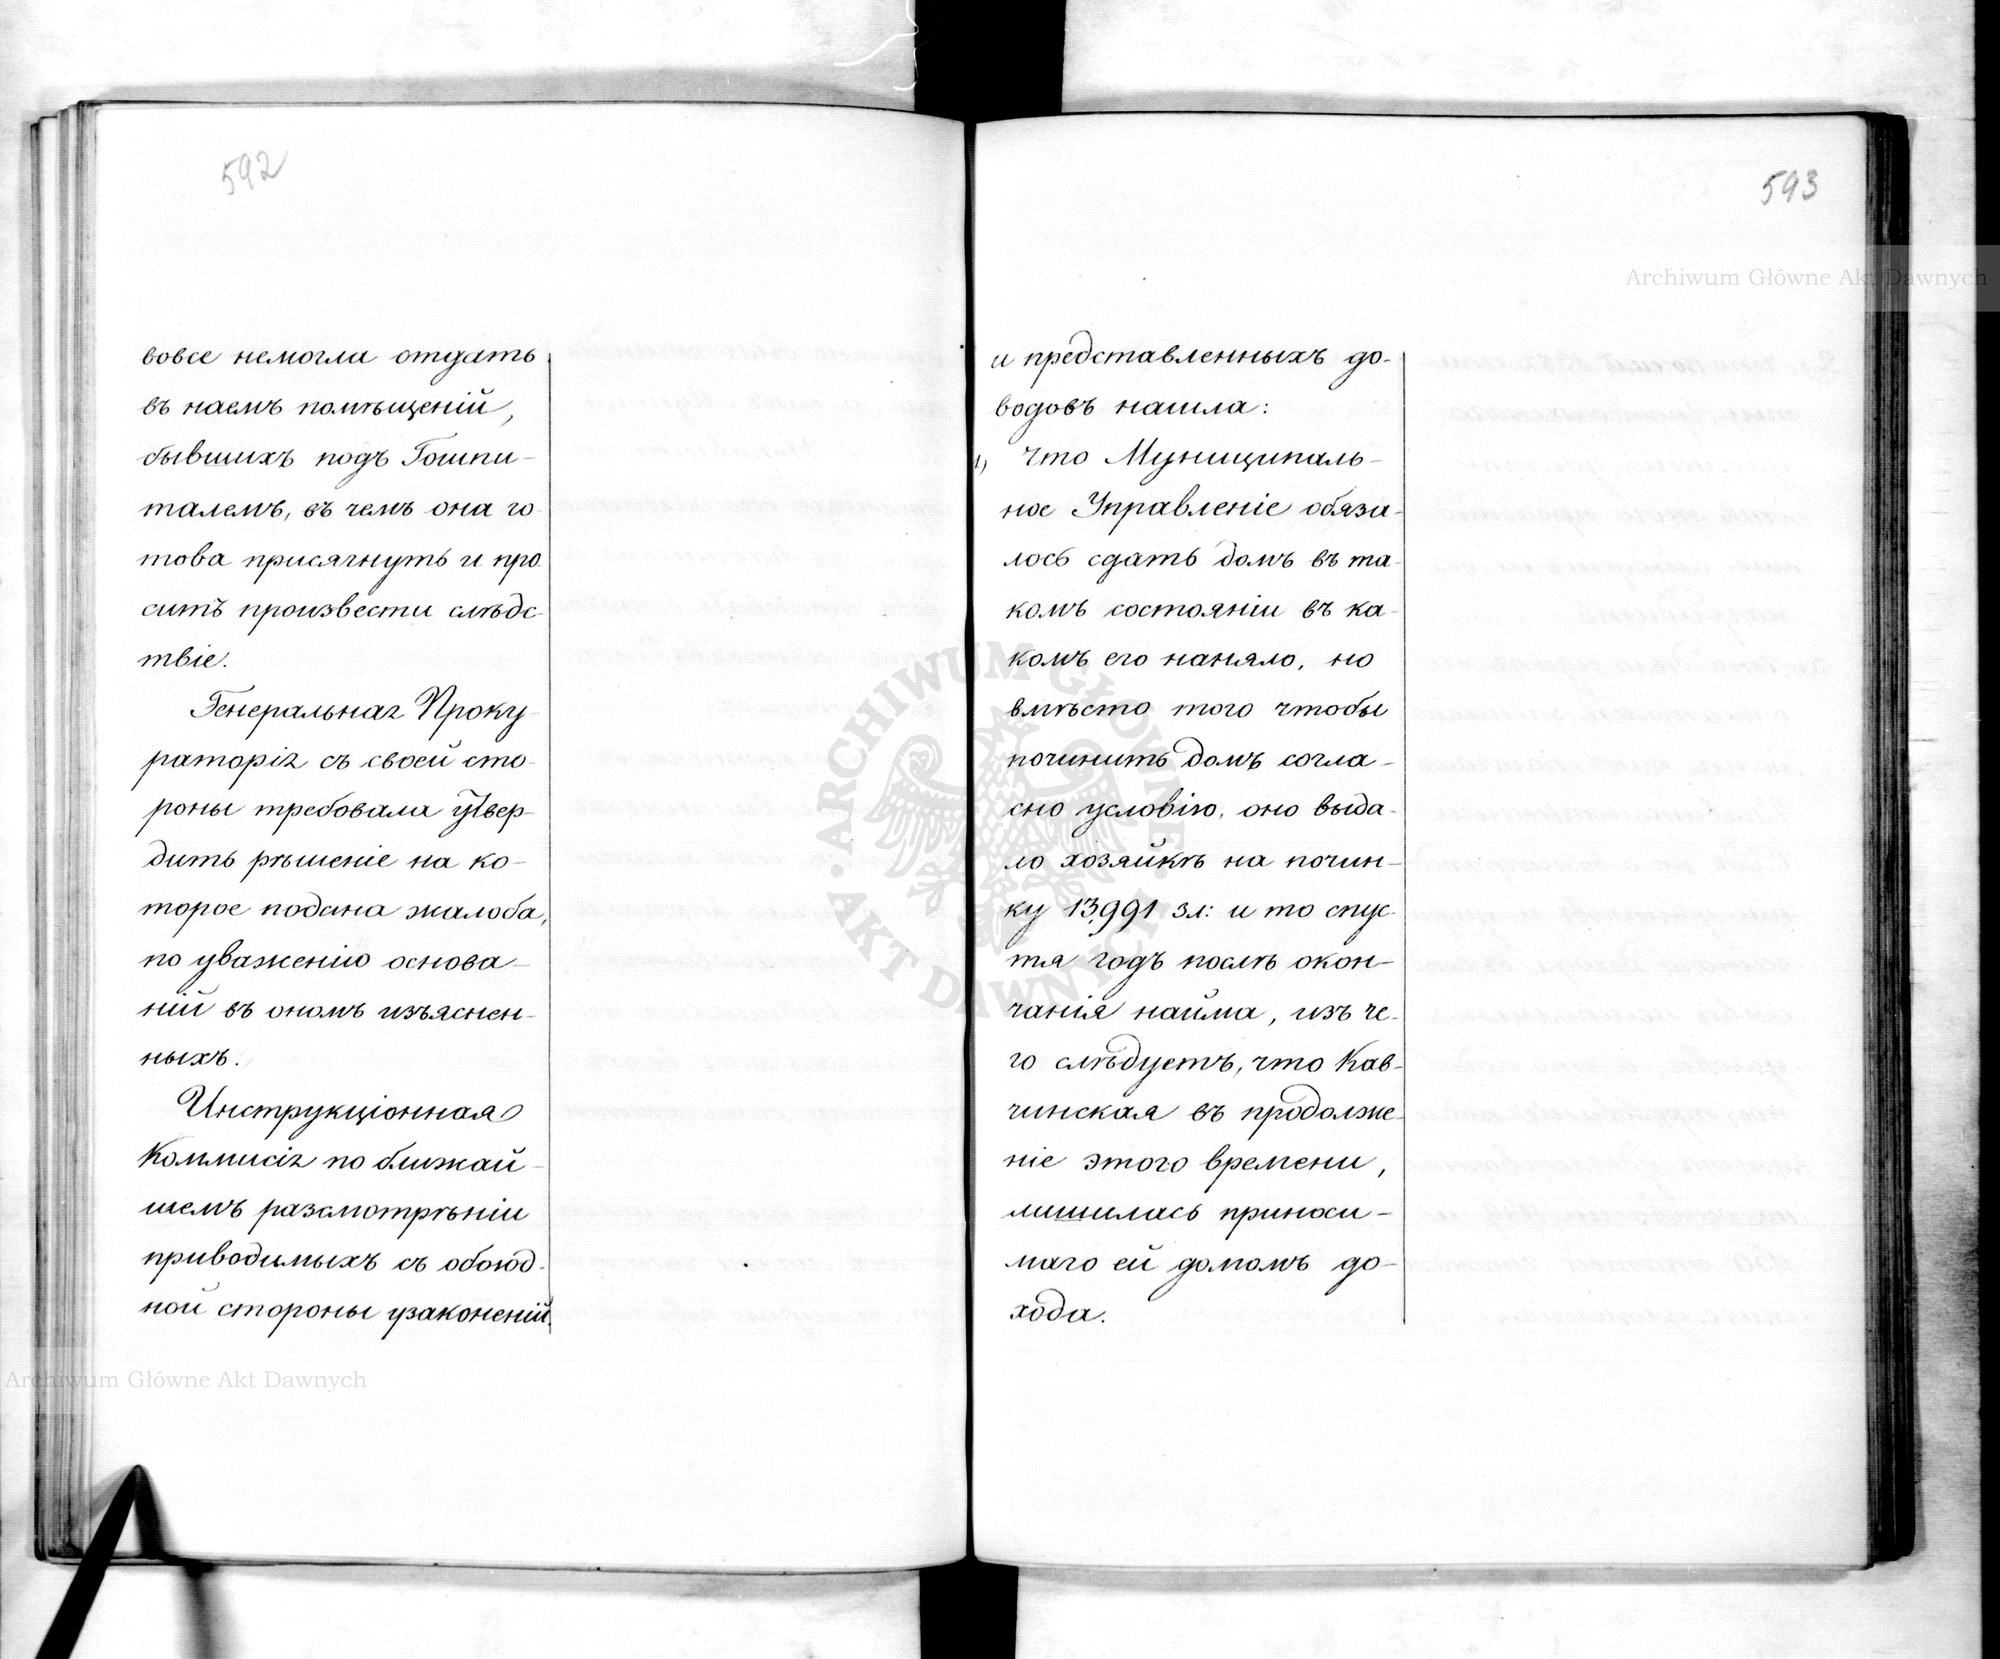 592
вовсе немогла отдать
въ наемъ помѣщеній,
бывшихъ подъ Гошпи-
талемъ, въ чемъ она го-
това присягнуть и про
ситъ произвести слѣдс-
твіе.
Генеральная Проку-
раторія съ своей сто-
роны требовала утвер-
дить рѣшеніе на ко-
торое подана жалоба,
по уваженію основа-
ній въ ономъ изъяснен-
ныхъ.
Инструкціонная
Коммисія по ближай-
шемъ разсмотрѣніи
приводимыхъ съ обоюд-
ной стороны узаконеній
593
и представленныхъ до-
водовъ нашла:
1) Что Муниципаль-
ное Управленіе обяза-
лось сдать домъ въ та-
комъ состояніи въ ка-
комъ его наняло, но
вмѣсто того чтобы
починить домъ согла-
сно условію, оно выда-
ло хозяйкѣ на почин-
ку 13,991 зл: и то спус-
тя годъ послѣ окон-
чанія найма, изъ че-
го слѣдуетъ, что Кав-
чинская въ продолже-
ніе этого времени,
лишилась приноси-
маго ей домомъ до-
хода.
Archiwum Główne Akt Dawnych
Archiwum Główne Akt Dawnych
ARCHIWUM GŁÓWNE AKT DAWNYCH